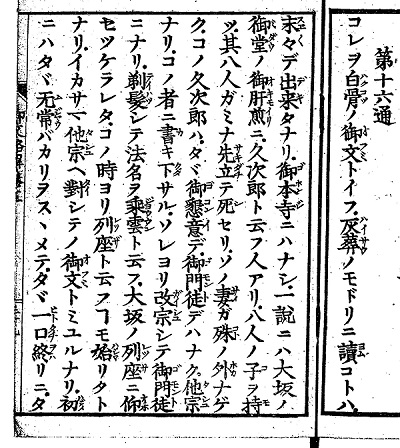 第十六通
コレヲ白骨ノ御文トイフ。灰葬ノモドリニ讀コトハ。
末々デ出来タナリ。御本寺ニハナシ。一説ニハ大坂ノ
御堂ノ御肝煎ニ。久次郎ト云フ人アリ。八人ノ子ヲ持
ツ。其八人ガミナ先立テ死セリ。ソノ妻ガ殊ノ外ナゲ
ク。コノ久次郎ハ。タヾ御懇意デ。御門徒デハナク。他宗
ナリ。コノ者ニ書キ下サル。ソレヨリ改宗シテ御門徒
ニナリ。剃髪シテ法名ヲ乘雲ト云フ。大坂ノ列座ニ仰
セツケラレタ。コノ時ヨリ列座ト云フヿモ始リタト
ナリ。イカサマ他宗ヘ對シテノ御文トミユルナリ。初
ニハタヾ无常バカリヲスヽメテ。タヾ一口終リニ。タ